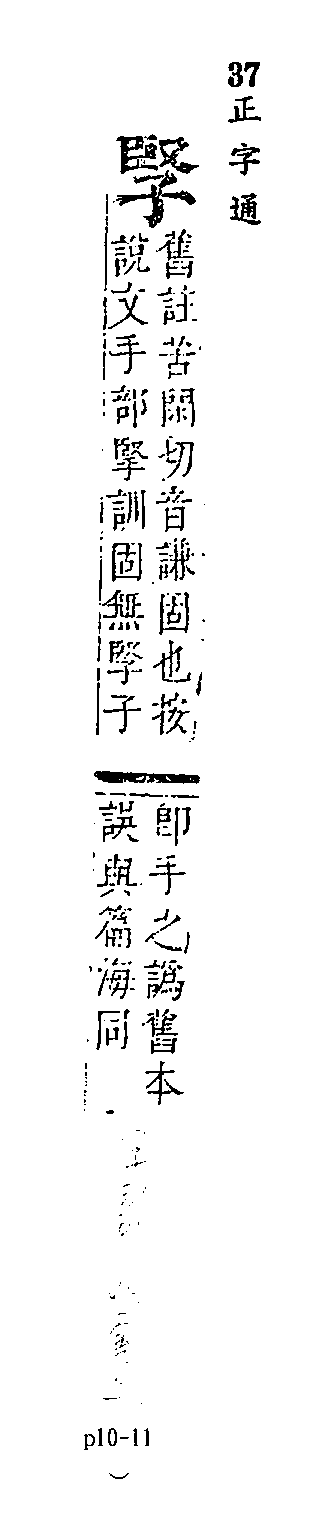 37
正字通
孯
舊註苦閑切音謙固也按
說文手部掔訓固無孯子
卽手之譌舊本
誤與篇海同
p10-11